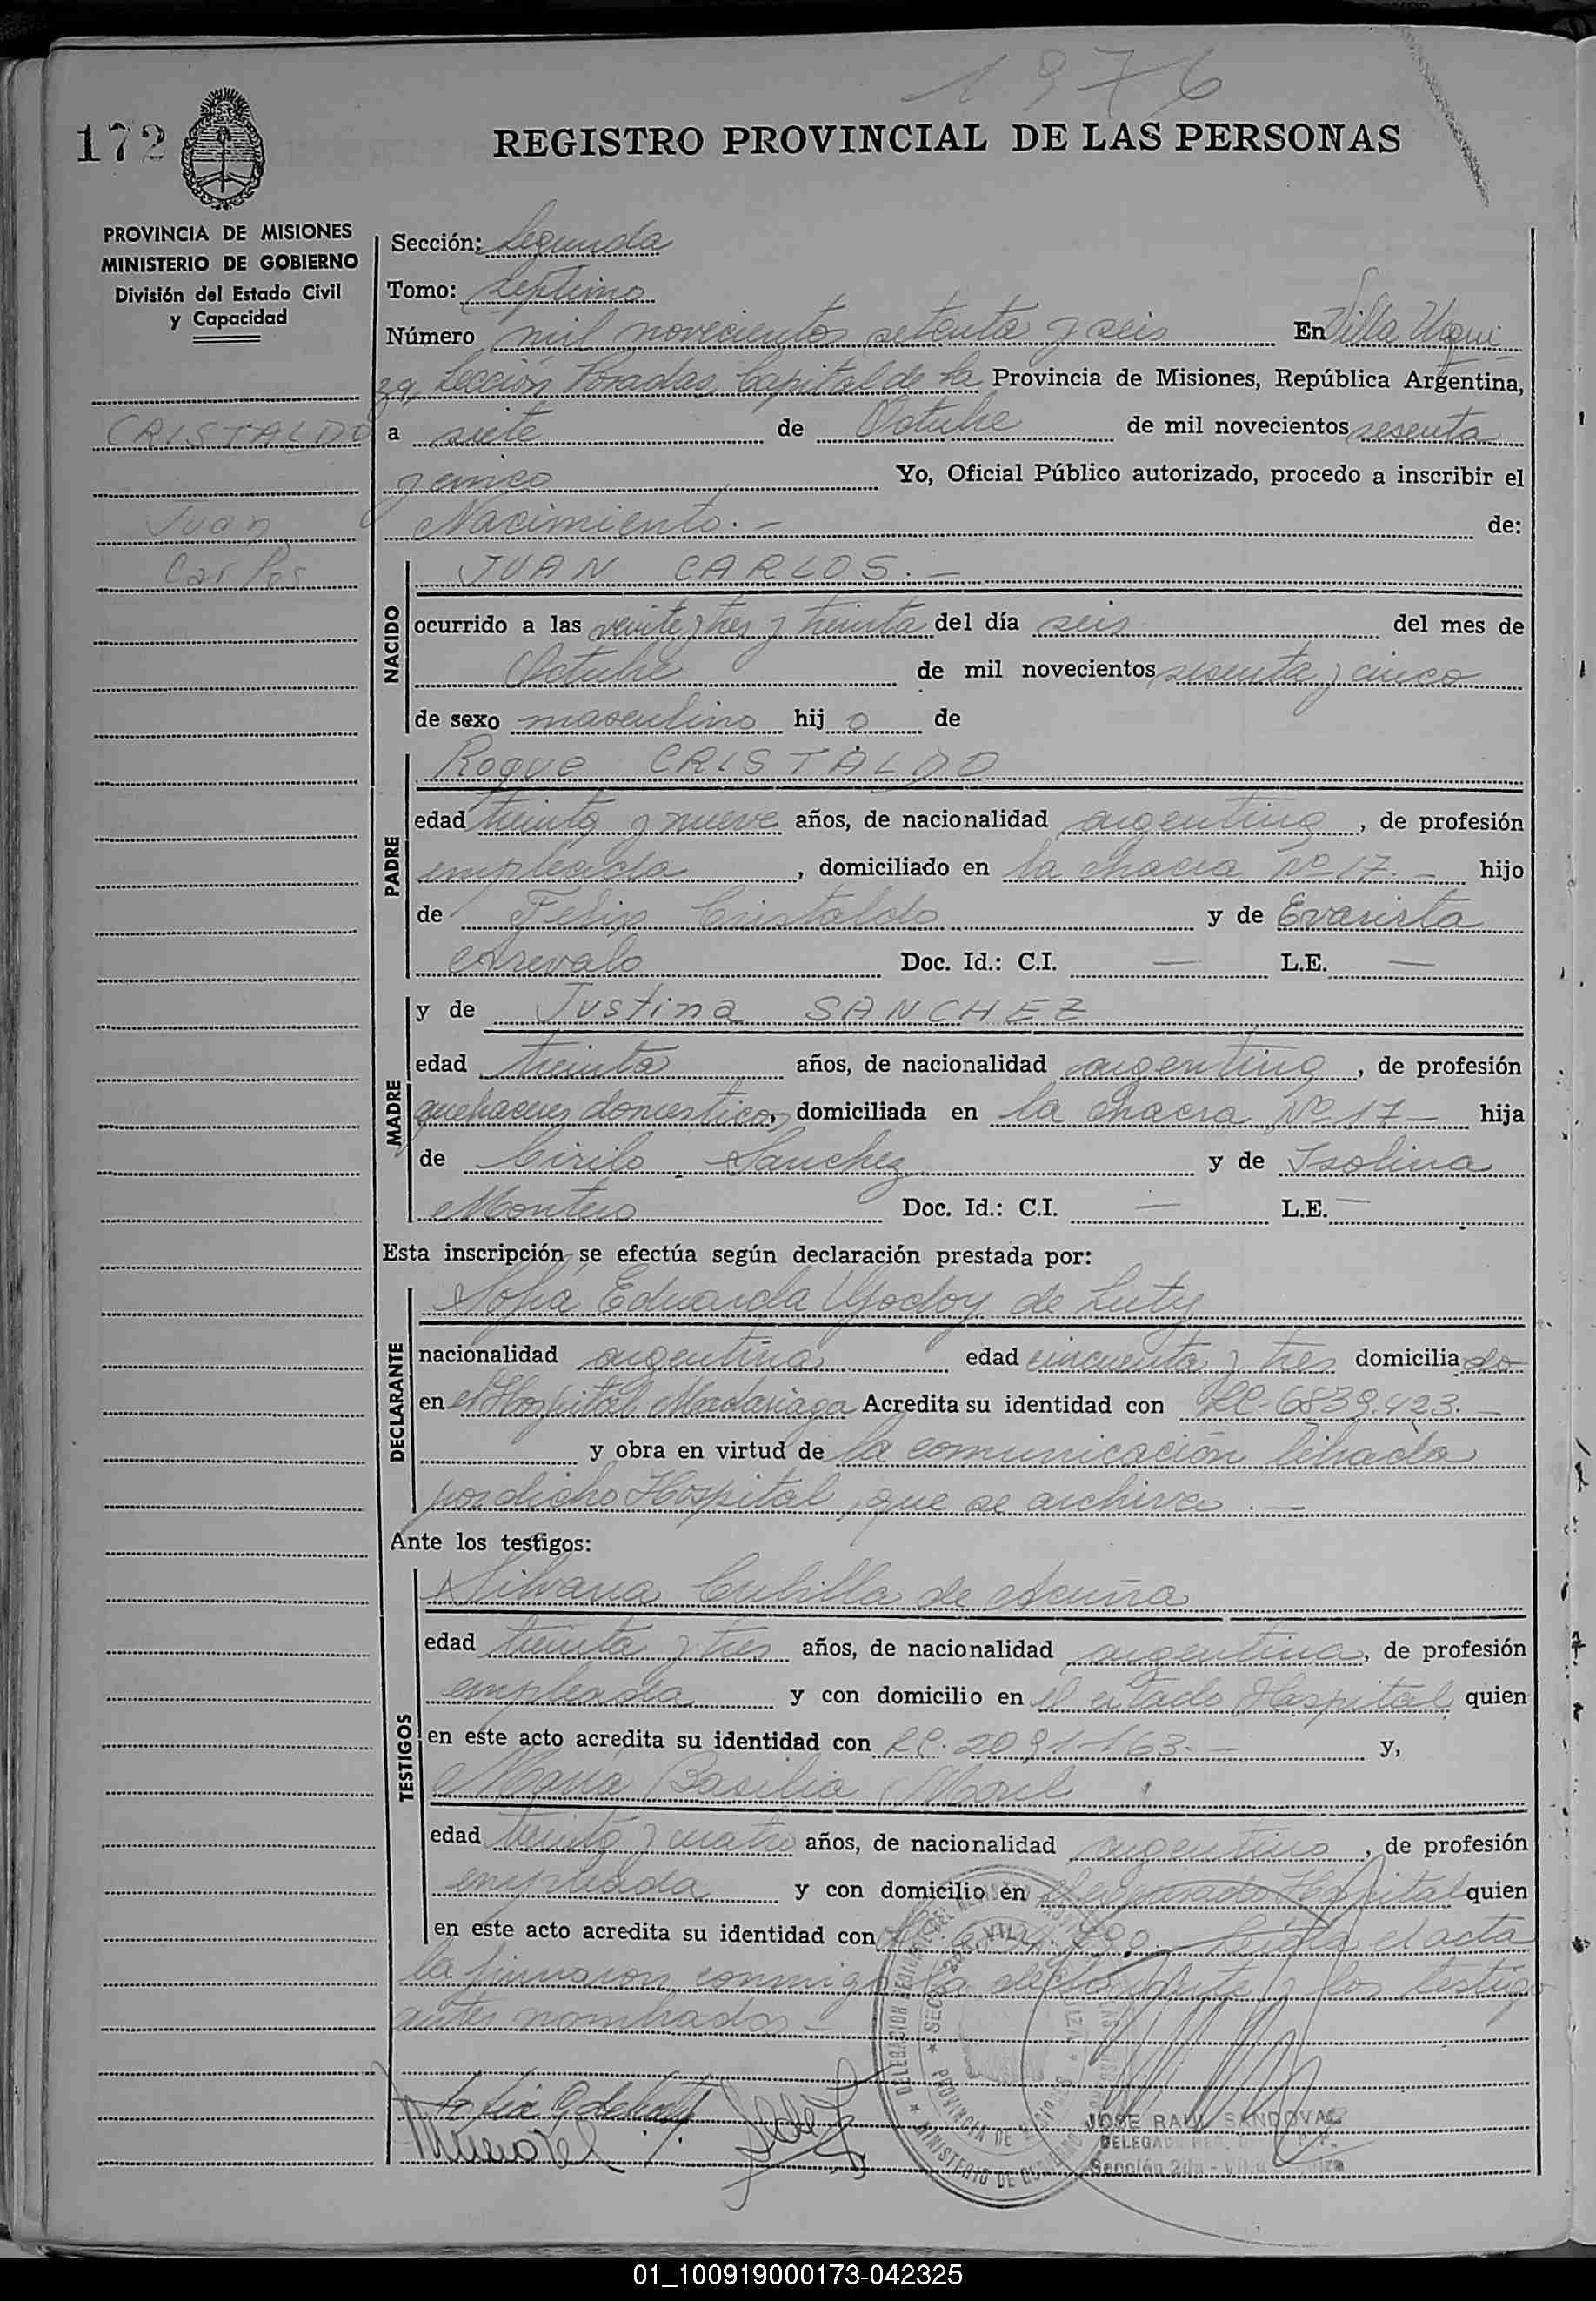 1976
172
REGISTRO PROVINCIAL DE LAS PERSONAS
PROVINCIA DE MISIONES
MINISTERIO DE GOBIERNO
División del Estado Civil
y Capacidad
CRISTALDO
Juan
Carlos
Sección: Segunda
Tomo: Septimo
Número mil novecientos setenta y seis En Villa Urqui
za, Sección Posadas Capital de la Provincia de Misiones, República Argentina,
a siete de Octubre de mil novecientos sesenta
y cinco Yo, Oficial Público autorizado, procedo a inscribir el
Nacimiento.- de:
NACIDO
JUAN CARLOS.-
ocurrido a las veinte y tres y treinta del día seis del mes de
Octubre de mil novecientos sesenta y cinco
de sexo masculino hijo de
PADRE
Roque CRISTALDO
edad treinta y nueve años, de nacionalidad argentina, de profesión
empleado, domiciliado en la chacra Nº 17.- hijo
de Felix Cristaldo y de Evarista
Arevalo Doc. Id.: C.I. — L.E. —
MADRE
y de Justina SANCHEZ
edad treinta años, de nacionalidad argentina, de profesión
quehaceres domesticos, domiciliada en la chacra Nº 17- hija
de Cirilo Sanchez y de Isolina
Montero Doc. Id.: C.I. — L.E. —
Esta inscripción se efectúa según declaración prestada por:
DECLARANTE
Sofia Eduarda Godoy de Luty
nacionalidad argentina edad cincuenta y tres domiciliado
en el Hospital Madariaga Acredita su identidad con LC-6839.423.-
y obra en virtud de la comunicación librada
por dicho Hospital, que se archiva.-
Ante los testigos:
TESTIGOS
Silvana Cubilla de Acuña
edad treinta y tres años, de nacionalidad argentina, de profesión
empleada y con domicilio en el citado Hospital quien
en este acto acredita su identidad con LC. 2091-163.- y,
Maria Basilia Morel
edad treinta y cuatro años, de nacionalidad argentina, de profesión
empleada y con domicilio en el Hospital quien
en este acto acredita su identidad con Leida el acta
la firmaron conmigo la declarante y los testigos
antes nombrados-
DELEGACION
MINISTERIO DE GOBIERNO
PROVINCIA DE MISIONES
JOSE RAUL SANDOVAL
Sección 2da - Villa Urquiza
01_100919000173-042325